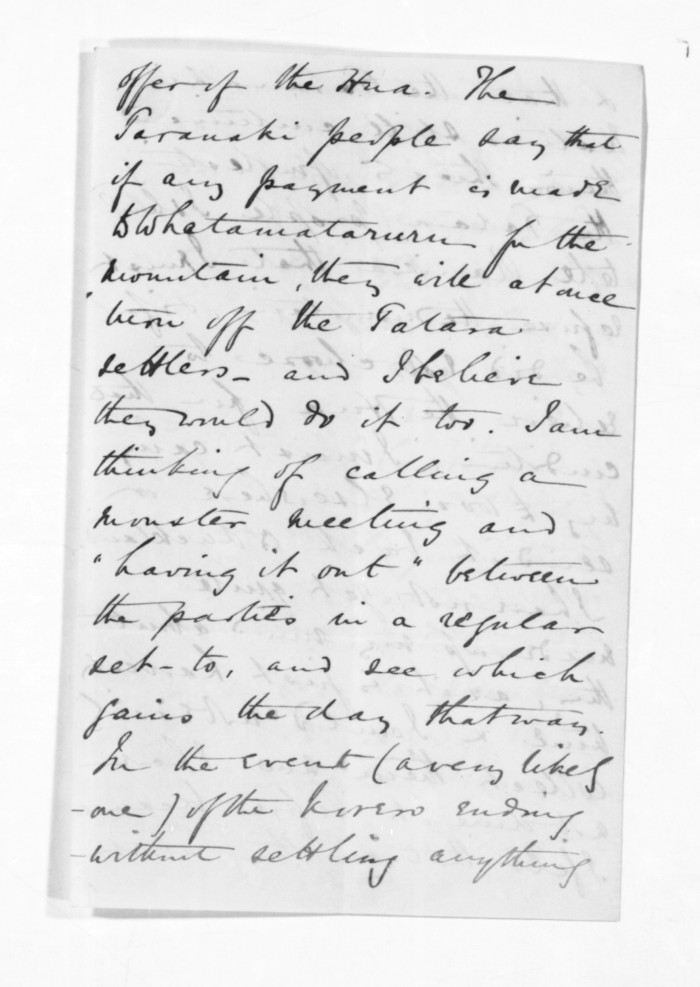 offer of the Hua. The
Taranaki people say that
if any payment is made
to Whatamataruru for the
mountain, they will at once
turn off the Tatara
settlers - and I believe
they would do it too. I am
thinking of calling a
monster meeting and
"having it out" between
the parties in a regular
set-to, and see which
gains the day that way.
In the event (a very likely
-one) of the korero ending
-without settling anything